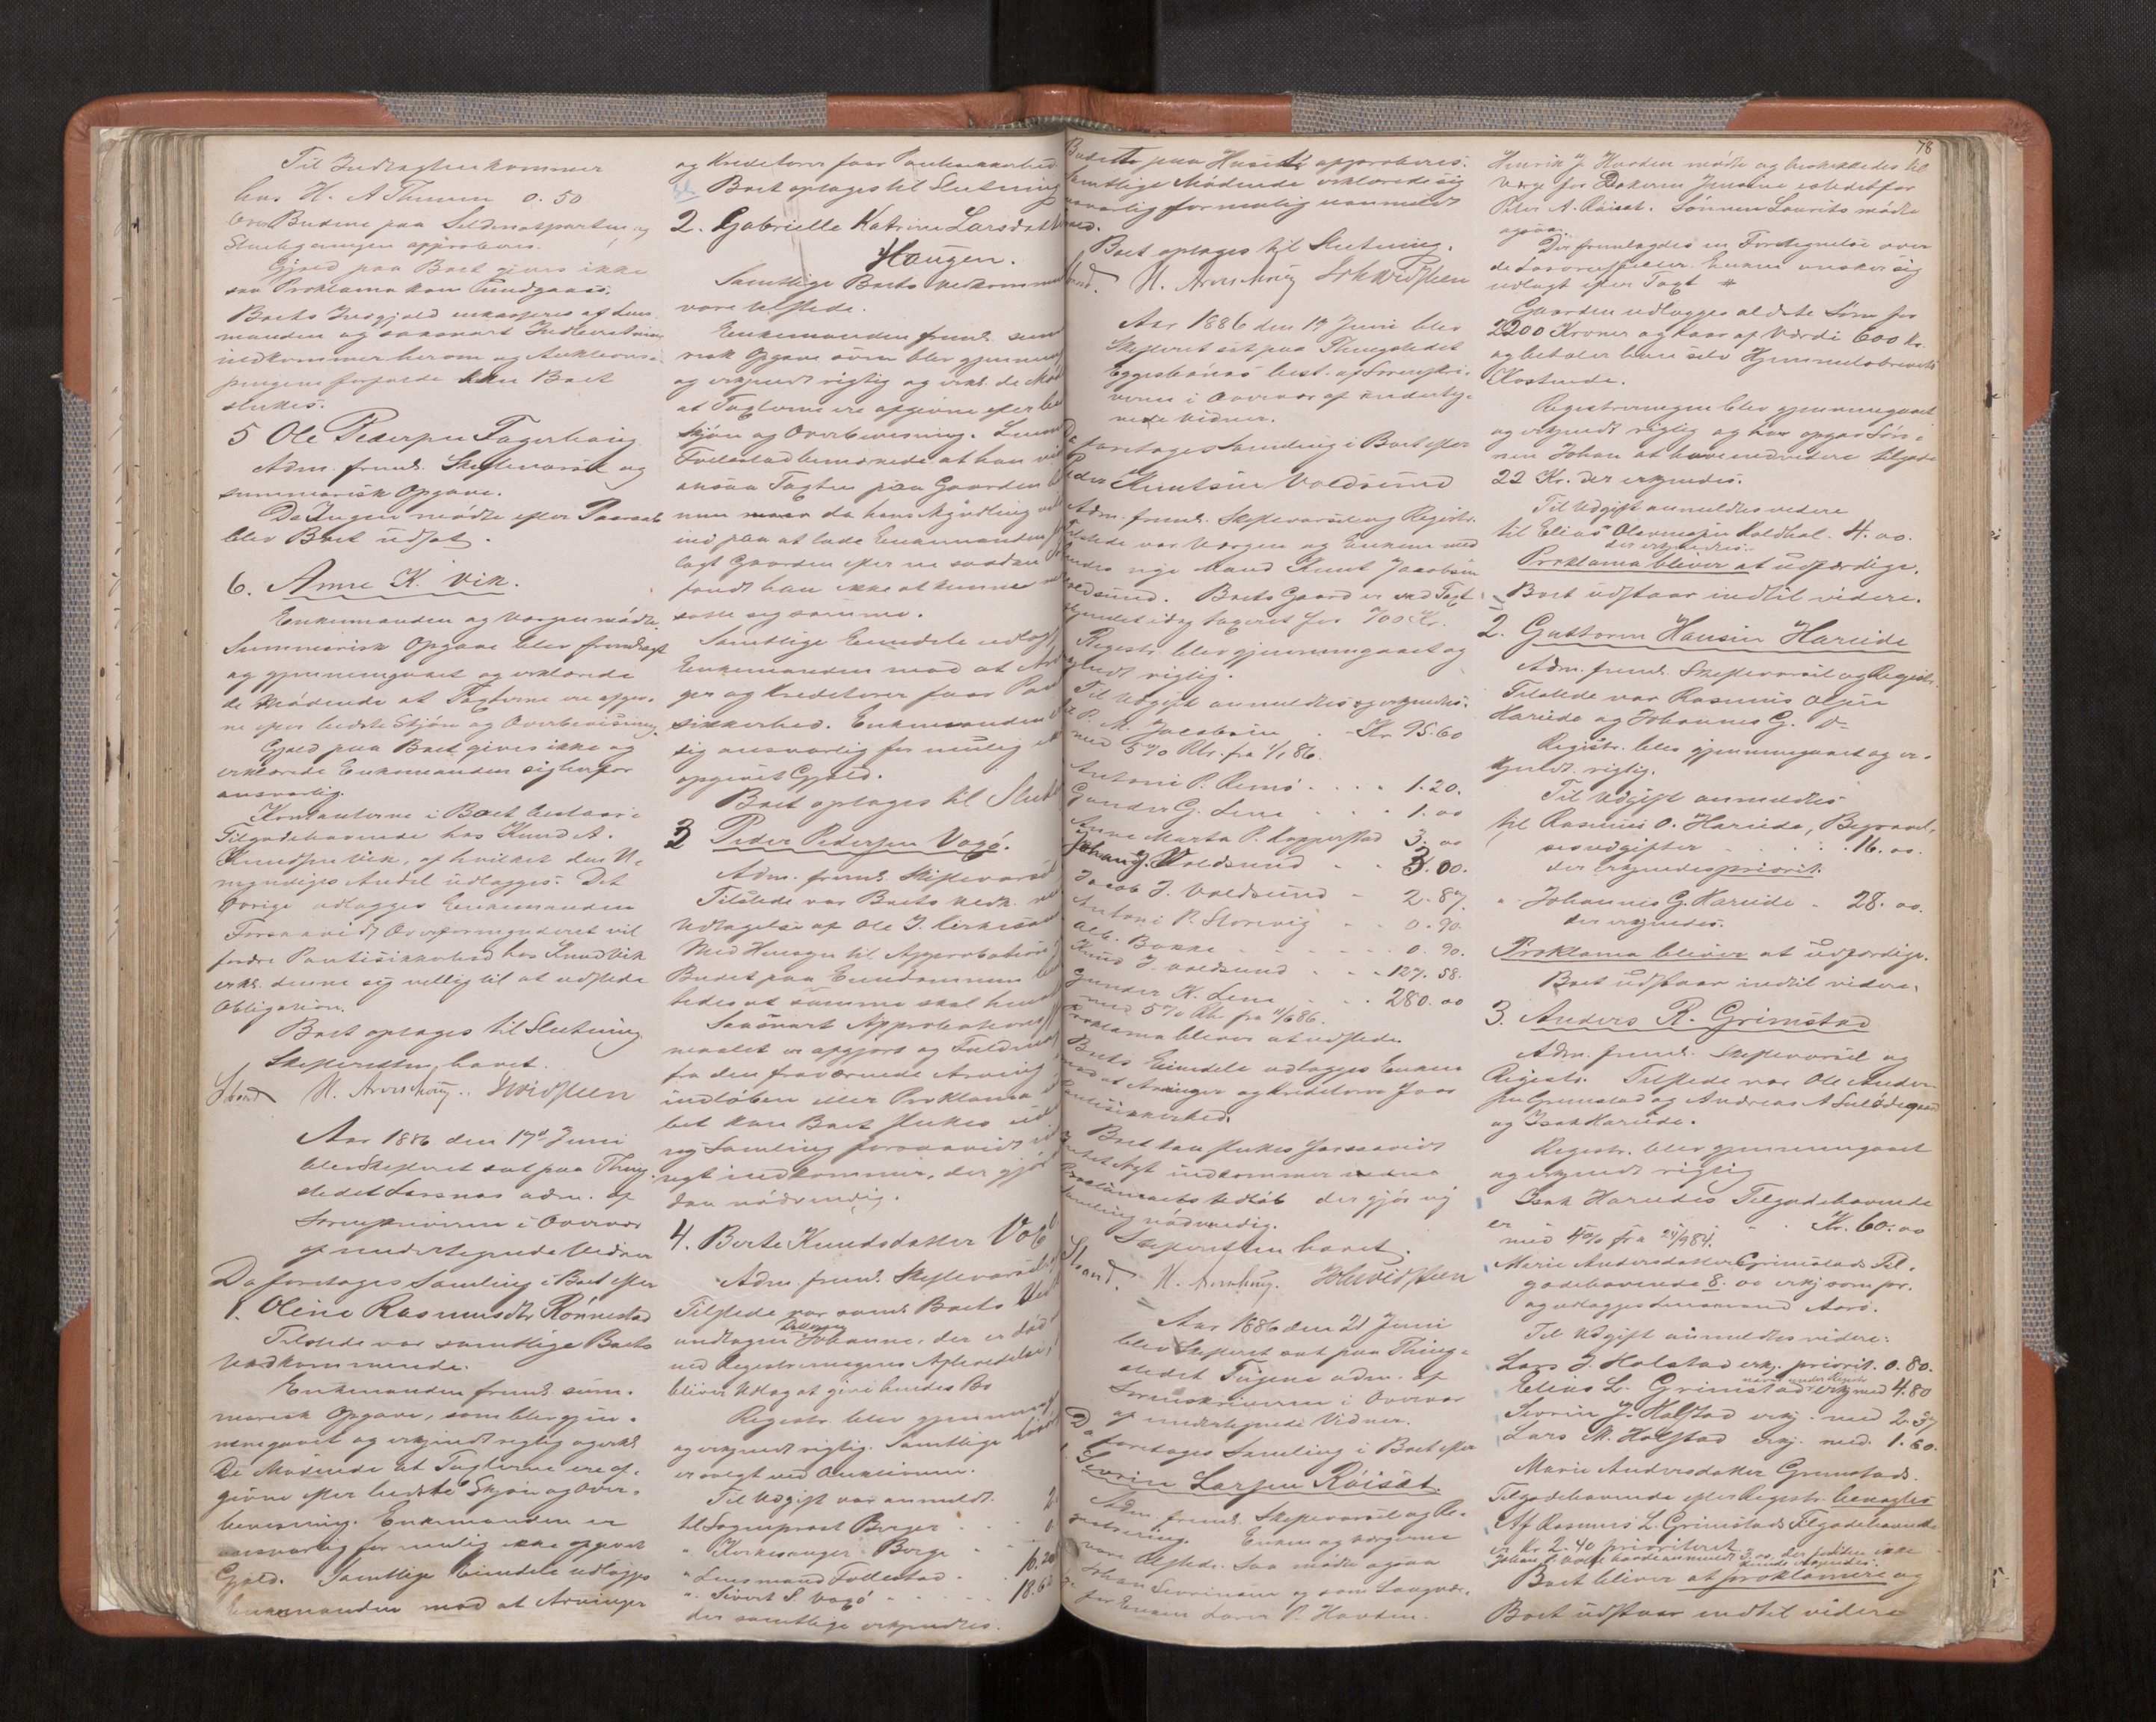 Til Indtægten kommer
hos H. A Thunem 0.50
Over Budene paa Sildenotsparten og
approberes.
Gjæld paa Boet gives ikke
saa Proklama kan undgaaes.
Boets Indgjæld inkasseres af Lens-
manden og saasnart Indberetning
indkommer herom og Auktions-
pengene forfalde kan Boet
sluttes.
5 Ole Pedersen Fagerhaug
Adm. freml. Skiftevarsel og
summarisk Opgave.
Da Ingen mødte efter Paaraab
blev Boet udsat.
6. Anne K. Vik.
Enkemanden og Værgen mødte.
Summarisk Opgave blev fremlagt
og gjennemgaaet og erklærede
de Mødende at Taxterne ere afgiv-
ne efter bedste Skjøn og Overbevisning.
Gjæld paa Boet gives ikke og
erklærede Enkemanden sig herfor
ansvarlig.
Kontanterne i Boet bestaar i
Tilgodehavende hos Knud A.
Knudsen Vik, af hvilket den U-
myndiges Andel udlægges. Det
Øvrige udlægges Enkemanden
Forsaavidt Overformynderiet vil
fordre Pantesikkerhed hos Knud Vik
erkl. denne sig villig til at udstede
Obligation.
Boet optages til Slutning
Skifteretten hævet.
Strand H. Aarskoug. JHvidsteen
Aar 1886 den 17d Juni
blev Skifteret sat paa Thing-
stedet Larsnæs adm. af
Sorenskriveren i Overvær
af undertegnede Vidner
Da foretages Samling i Boet efter
1. Oline Rasmusdtr Rønnestad
Tilstede var samtlige Boets
Vedkommende.
Enkemanden freml. sum-
marisk Opgave, som blev gjen-
nemgaaet og erkjendt rigtig og erkl.
De Mødende at Taxterne ere af-
givne efter bedste Skjøn og Over-
bevisning. Enkemanden er
ansvarlig for mulig ikke opgivet
Gjæld. Samtlige Eiendele udlægges
Enkemanden mod at Arvinger
og Kreditorer faar Pantesikkerhed.
Boet optages til Slutning
2. Gabrielle Katrine Larsdatter
Haugen.
Samtlige Boets Vedkommende
vare tilstede.
Enkemanden freml. summa-
risk Opgave som blev gjennemg
og erkjendt rigtig og erkl. de Mød
at Taxterne ere afgivne efter bed
Skjøn og Overbevisning. Lensm
Follestad bemærkede at han
ansaa Taxten paa Gaarden
men da hans Myndling
ind paa at lade Enkemanden
lagt Gaarden efter en saadan
fandt han ikke at kunne
sætte sig samme.
Samtlige Eiendele udlagt
Enkemanden mod at Arvin
ger og Kreditorer faar Pan
sikkerhed. Enkemanden
sig ansvarlig for mulig
opgivet Gjæld.
Boet optages til Slut
3 Peder Pedersen Vågø.
Adm. freml. Skiftevarsel
Tilstede var Boets Vedk.
Undtagelse af Ole J.
Med Hensyn til Approbation
Budet paa Eiendommen
Saasnart Approbations
er afgjort og Fuldmagt
fra den fraværende Arving
indløben eller Proklama
bet kan Boet sluttes uden
ny Samling forsaavidt
nyt indkommer, der gjør
dan nødvendig.
4. Berte Knudsdatter Vågø
Adm. freml. Skiftevarsel
Tilstede var saml. Boets Ved
undtagen Datteren Johanne, der er død
ved Registreringens Afholdelse,
bliver Udlæg at give hendes Bo
Registr. blev gjennemg
og erkjendt rigtig. Samtlige
er solgt ved Auktionen.
Til Udgift var anmeldt. 2.
til Sogneprest Berger
" Kirkesanger Berge
" Lensmand Follestad 16.20
" Sivert S. Vågø 18.62
der samtlige erkjendtes.
Budet paa Huset approberes.
Samtlige Mødende erklærede sig
ansvarlig for mulig uanmeldt
Boet optages til Slutning.
Strand. H. Aarskoug JohHvidsteen
Aar 1886 den 19 Juni blev
Skifteret sat paa Thingstedet
Eggesbønæs best. af Sorenskri-
veren i Overvær af underteg-
nede Vidner.
Da foretages Samling i Boet efter
Peder Knutsen Voldsund
Adm. freml. Skiftevarsel og Registr.
Tilstede var Værgen og Enken med
hendes nye Mand Knut Jacobsen
Voldsund. Boets Gaard er ved Taxt
afholdt idag taxeret for 700 Kr.
Registr. blev gjennemgaaet og
erkjendt rigtig.
Til Udgift anmeldtes og erkjendtes.
til P. M. Jacobsen Kr 95.60
med 5% Rtr. fra 1/1 86.
Antoni P. Remø 1.20.
Gunder G. Lene 1.00
Anne Marta P. Kopperstad 3.00
Johan J. Voldsund 3.00.
Jacob J. Voldsund 2.87.
Antoni P. Storevig 0.90.
Ole Bakke 0.90.
Knud J. Voldsund 127.58.
Gunder K. Lene 280.00
med 5% Rtr fra 11/6 86.
Proklama bliver at udstede.
Boets Eiendele udlægges Enken
mod at Arvinger og Kreditorer faar
Pantesikkerhed.
Boet kan sluttes forsaavidt
Intet Nyt indkommer inden
Proklamaets Udløb der gjør ny
Samling nødvendig.
Skifteretten hævet.
Strand. H. Aarskoug. JohHvidsteen
Aar 1886 den 21 Juni
blev Skifteret sat paa Thing-
stedet Tugene adm. af
Sorenskriveren i Overvær
af undertegnede Vidner.
Da foretages Samling i Boet efter
1. Sevrin Larsen Röisæt.
Adm. freml. Skiftevarsel og Re-
gistrering. Enken og Værgerne
vare tilstede. Saa mødte ogsaa
Johan Sevrinsen og som Laugvær-
ge for Enken Lars P. Hovden.
78
Henrik J. Hovden mødte og beskikkedes til
Værge for Datteren Jensine istedetfor
Peter A. Röisæt. Sønnen Laurits mødte
ogsaa.
Der fremlagdes en Fortegnelse over
de Løsøreeffekter Enken ønsker sig
udlagt efter Taxt
Gaarden udlægges ældste Søn for
2200 Kroner og Kaar af Værdi 600 Kr.
og betaler han selv Hjemmelsbrevets
Kostende.
Registreringen blev gjennemgaaet
og erkjendt rigtig og opgav Søn-
nen Johan at have endvidere tilgode
22 Kr. der erkjendtes.
Til Udgift anmeldtes videre
til Elias Olavessen Koldhal. 4.00.
der erkjendtes.
Proklama bliver at udfærdige.
Boet udstaar indtil videre.
2. Guttorm Hansen Hareide
Adm. freml. Skiftevarsel og Registr.
Tilstede var Rasmus Olsen
Hareide og Johannes G. do
Registr. blev gjennemgaaet og er-
kjendt rigtig.
Til Udgift anmeldtes
til Rasmus O. Hareide, Begravel-
sesudgifter 16.00.
der erkjendtes priorit.
" Johannes G. Hareide 28.00.
der erkjendtes.
Proklama bliver at udfærdige.
Boet udstaar indtil videre.
3. Anders R. Grimstad
Adm. freml. Skiftevarsel og
Registr. Tilstede var Ole Ander-
sen Grimstad og Andreas A Sulødegaard
og Isak Hareide.
Registr. blev gjennemgaaet
og erkjendt rigtig
Isak Hareides Tilgodehavende
er Kr. 60.00
med 4% fra 24/9 84.
Marie Andersdatter Grimstads Til-
godehavende 8.00 erkj som pr.
og udlægges Lensmand Aarø.
Til Udgift anmeldtes videre:
Lars J. Holstad erkj. priorit. 0.80.
Elias L. Grimstad erkj med 4.80
Sevrin J. Holstad erkj. med 2.57
Lars M. Holstad erkj. med. 1.60.
Marie Andersdatter Grimstads
Tilgodehavende efter Registr. benegtes
Af Rasmus L. Grimstads Tilgodehavende
er Kr 2.40 prioriteret.
Boet bliver at proklamere og
Boet udstaar indtil videre